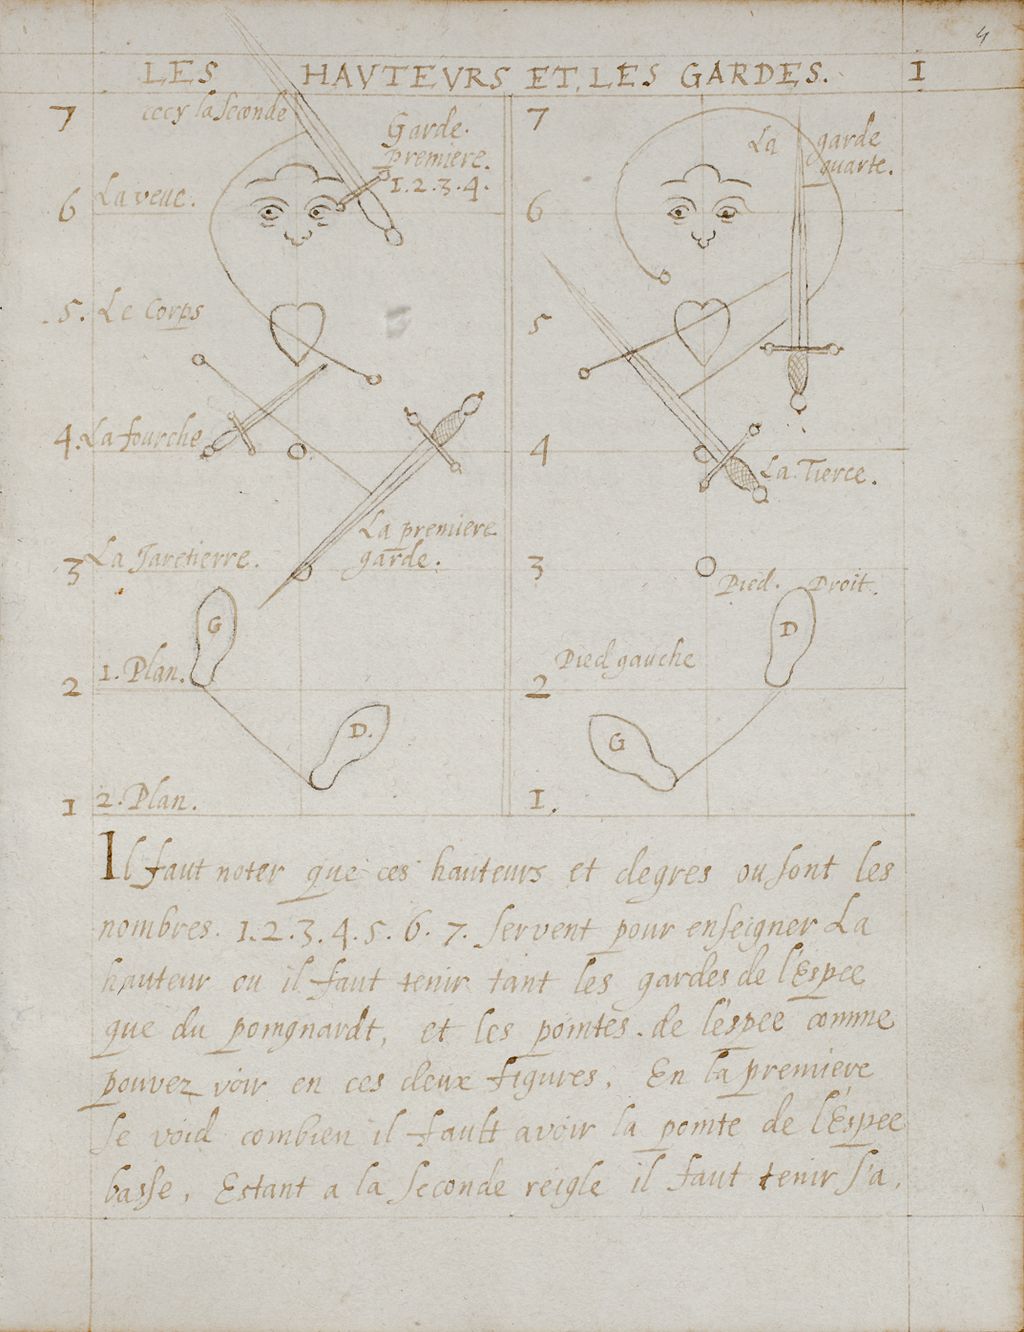 4
LES HAVTEVRS ET LES GARDES. I
7
cecy la seconde
Garde.
premiere.
1.2.3.4.
6 La veue.
5. Le Corps
4. La fourche
La premiere
garde.
3 La Jaretierre.
G
2 1. Plan.
D.
1 2. Plan.
7
La garde
quarte.
6
5
4
La Tierce.
3
Pied. Droit.
D
Pied gauche
2
G
1.
Il faut noter que ces hauteurs et degres ou sont les
nombres. 1. 2. 3. 4. 5. 6. 7. servent pour enseigner La
hauteur ou il faut tenir tant les gardes de l'Espee
que du poingnardt, et les pointes. de l'espee comme
pouvez voir en ces deux figures. En la premiere
se void combien il fault avoir la pointe de l'Espee
basse, Estant a la seconde reigle il faut tenir s'a,